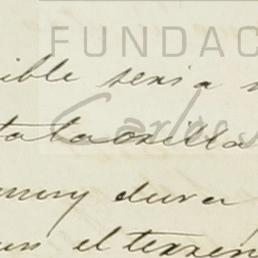 FUNDAC
ible seria
ta la orilla
Carlos
muy dura
un el terren